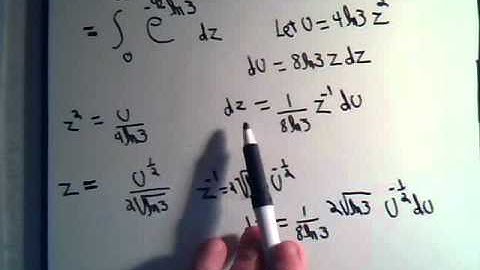 = ∫₀ e^{-4z²ln3} dz
Let U = 4ln3 z²
dU = 8ln3 z dz
z² = U/4ln3
dz = 1/8ln3 z⁻¹ dU
z = U^{1/2}/2√ln3
z⁻¹ = 2√ U^{-1/2}
= 1/8ln3 2√ln3 U^{-1/2} dU